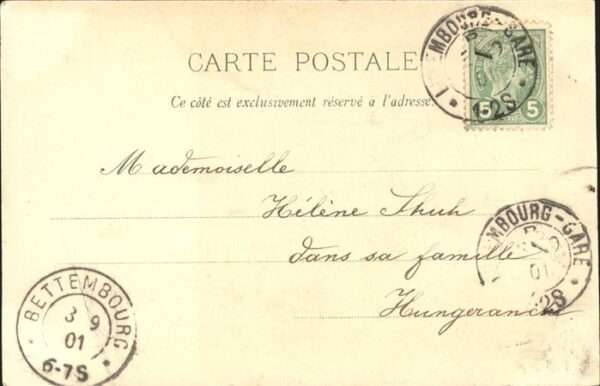 CARTE POSTALE
Ce côté est exclusivement réservé a l'adresse.
MBOURG-GARE
1-2S
5 5
Mademoiselle
Hélène
dans sa famille
MBOURG-GARE
01
2S
BETTEMBOURG
3 9
01
6-7S